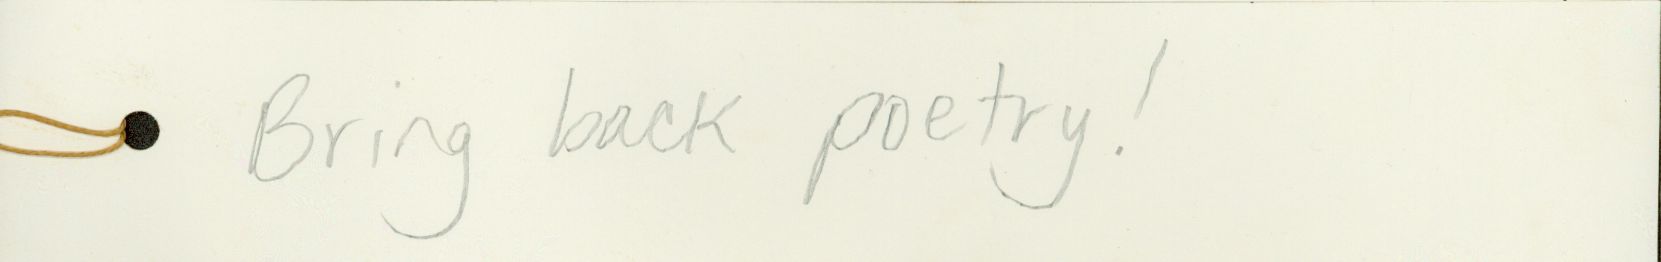 Bring back poetry!